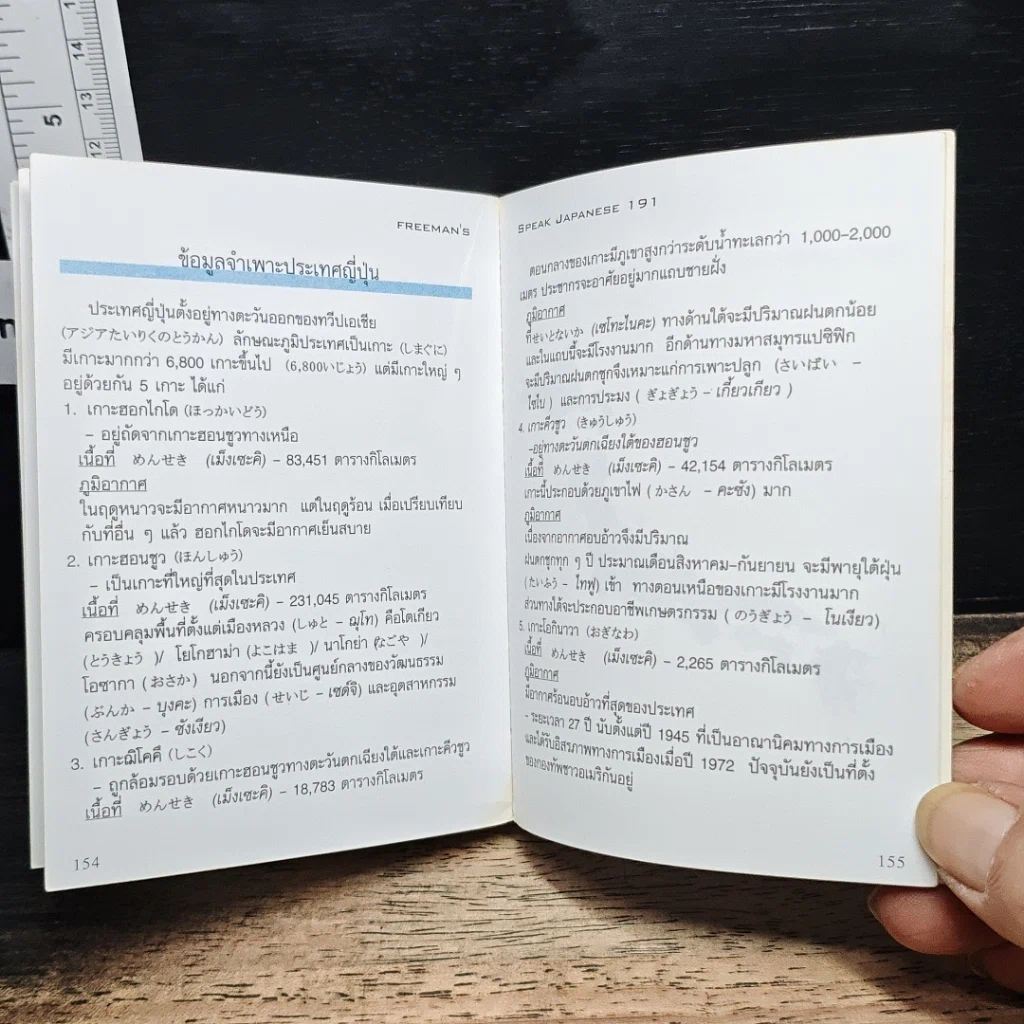 14
13
5
12
FREEMAN'S
ข้อมูลจำเพาะประเทศญี่ปุ่น
ประเทศญี่ปุ่นตั้งอยู่ทางตะวันออกของทวีปเอเชีย
(アジアたいりくのとうかん) ลักษณะภูมิประเทศเป็นเกาะ (しまぐに)
มีเกาะมากกว่า 6,800 เกาะขึ้นไป (6,800いじょう) แต่มีเกาะใหญ่ ๆ
อยู่ด้วยกัน 5 เกาะ ได้แก่
1. เกาะฮอกไกโด (ほっかいどう)
– อยู่ถัดจากเกาะฮอนชูวทางเหนือ
เนื้อที่ めんせき (เม็งเซะคิ) – 83,451 ตารางกิโลเมตร
ภูมิอากาศ
ในฤดูหนาวจะมีอากาศหนาวมาก แต่ในฤดูร้อน เมื่อเปรียบเทียบ
กับที่อื่น ๆ แล้ว ฮอกไกโดจะมีอากาศเย็นสบาย
2. เกาะฮอนชูว (ほんしゅう)
– เป็นเกาะที่ใหญ่ที่สุดในประเทศ
เนื้อที่ めんせき (เม็งเซะคิ) – 231,045 ตารางกิโลเมตร
ครอบคลุมพื้นที่ตั้งแต่เมืองหลวง (しゅと – ฌุโท) คือโตเกียว
(とうきょう )/ โยโกฮาม่า (よこはま )/ นาโกย่า (なごや )/
โอซากา (おさか) นอกจากนี้ยังเป็นศูนย์กลางของวัฒนธรรม
(ぶんか – บุงคะ) การเมือง (せいじ – เซด์จิ) และอุตสาหกรรม
(さんぎょう – ซังเงียว)
3. เกาะฌิโคคึ (しこく)
– ถูกล้อมรอบด้วยเกาะฮอนชูวทางตะวันตกเฉียงใต้และเกาะคีวชูว
เนื้อที่ めんせき (เม็งเซะคิ) – 18,783 ตารางกิโลเมตร
154
SPEAK JAPANESE 191
ตอนกลางของเกาะมีภูเขาสูงกว่าระดับน้ำทะเลกว่า 1,000–2,000
เมตร ประชากรจะอาศัยอยู่มากแถบชายฝั่ง
ภูมิอากาศ
ที่せいとないか (เซโทะไนคะ) ทางด้านใต้จะมีปริมาณฝนตกน้อย
และในแถบนี้จะมีโรงงานมาก อีกด้านทางมหาสมุทรแปซิฟิก
จะมีปริมาณฝนตกชุกจึงเหมาะแก่การเพาะปลูก (さいばい –
ไซไบ ) และการประมง ( ぎょぎょう – เกี้ยวเกียว )
4. เกาะคีวชูว (きゅうしゅう)
-อยู่ทางตะวันตกเฉียงใต้ของฮอนชูว
เนื้อที่ めんせき (เม็งเซะคิ) – 42,154 ตารางกิโลเมตร
เกาะนี้ประกอบด้วยภูเขาไฟ ( かさん – คะซัง) มาก
ภูมิอากาศ
เนื่องจากอากาศอบอ้าวจึงมีปริมาณ
ฝนตกชุกทุก ๆ ปี ประมาณเดือนสิงหาคม–กันยายน จะมีพายุใต้ฝุ่น
(たいふう – ไทฟู) เข้า ทางตอนเหนือของเกาะมีโรงงานมาก
ส่วนทางใต้จะประกอบอาชีพเกษตรกรรม ( のうぎょう – โนเงียว)
5. เกาะโอกินาวา (おぎなわ)
เนื้อที่ めんせき (เม็งเซะคิ) – 2,265 ตารางกิโลเมตร
ภูมิอากาศ
มีอากาศร้อนอบอ้าวที่สุดของประเทศ
- ระยะเวลา 27 ปี นับตั้งแต่ปี 1945 ที่เป็นอาณานิคมทางการเมือง
และได้รับอิสรภาพทางการเมืองเมื่อปี 1972 ปัจจุบันยังเป็นที่ตั้ง
ของกองทัพชาวอเมริกันอยู่
155